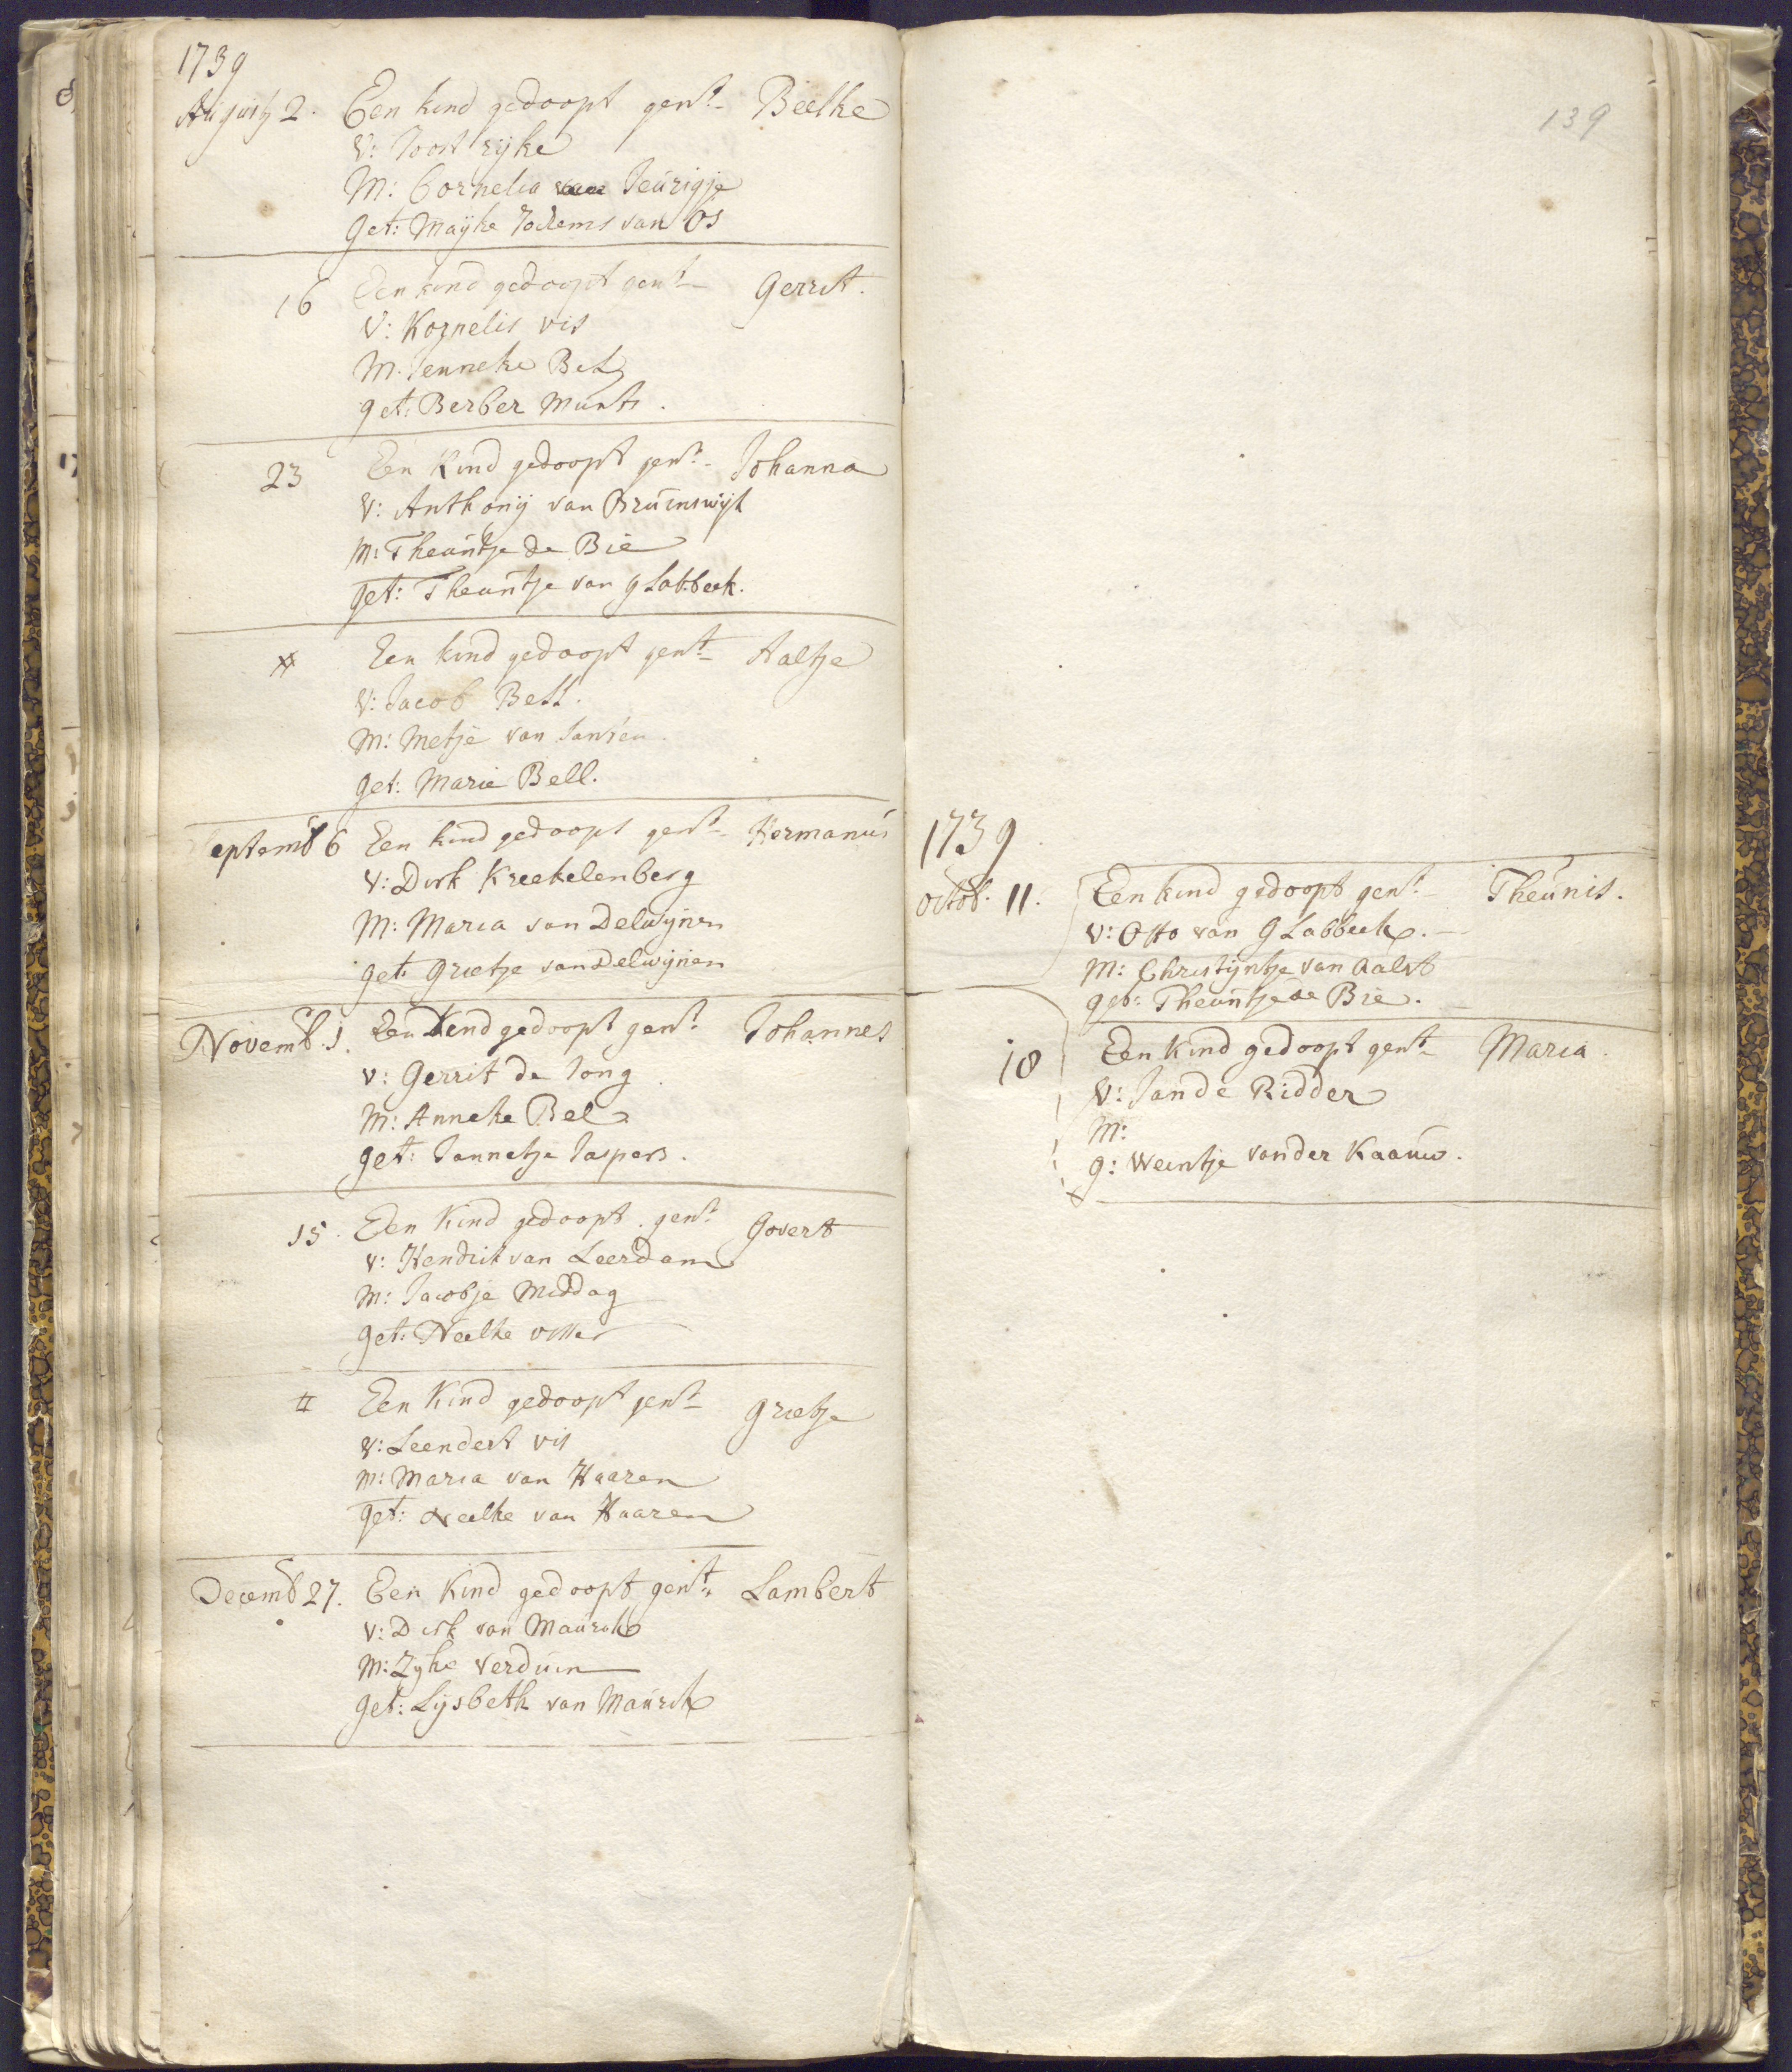 1739
August 2. Een kind gedoopt gent. Beelke
V: Joost rijke
M: Cornelia Teurigje
Get: Maijke Jochems van Os
16 Een kind gedoopt gent. Gerrit.
V: Kornelis vis
M. Jenneke Bel
get: Berber Munts.
23 Een Kind gedoopt gent. Johanna
V: Anthonij van Bruinswijk
M: Theuntje de Bie
get: Theuntje van gLabbeek.
Een kind gedoopt gent. Aaltje
V: Jacob Bell.
M: Metje van Santen.
get: Marie Bell.
Septemb 6 Een kind gedoopt gent. Hermanus
V: Dirk Kreekelenberg
M: Maria van Delwijnen
get: Grietje van Delwijnen
Novemb. 1. Een Kend gedoopt gent. Johannes
V: Gerrit de Jong
M: Anneke Bel
get: Jannetje Jaspers.
15. Een Kind gedoopt. gent. Govert
V: Hendrik van Leerdam
M: Jacobje Middag
get: Neelke visser
Een Kind gedoopt gent. Grietje
V: Leendert vis
M: Maria van Haaren
get: Neelke van Haaren
Decemb 27. Een Kind gedoopt gent. Lambert
V: Dirk van Maurik
M: Zyke Verduin
Get: Lijsbeth van Maurik
139
1739
octob. 11. Een kind gedoopt gent. Theunis.
V: Otto van gLabbeek.
M: Christijntje van Aalst
get: Theuntje de Bie.
18 Een kind gedoopt gent. Maria.
V: Jan de Ridder
M:
g: Weintje van der Kaauw.